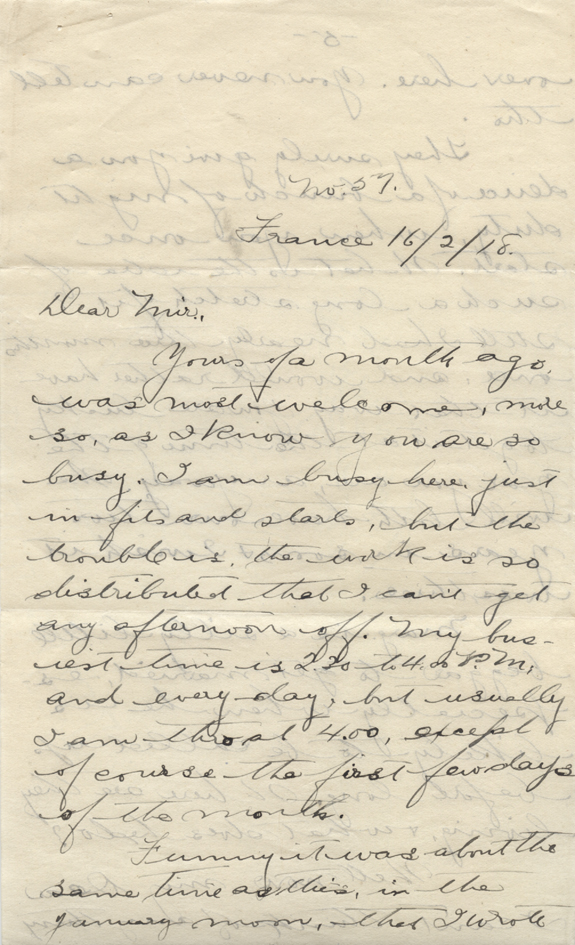 No. 57.
France 16/2/18.
Dear Mir.,
Yours of a month ago,
was most welcome, more
so, as I know you are so
busy. I am busy here, just
in fits and starts, but the
trouble is, the work is so
distributed that I can't get
any afternoon off. My bus-
iest time is 2.30 to 4.00 P.M,
and every day, but usually
I am thro at 4.00, except
of course the first few days
of the month.
Funny it was about the
same time as this, in the
January moon, that I wrote